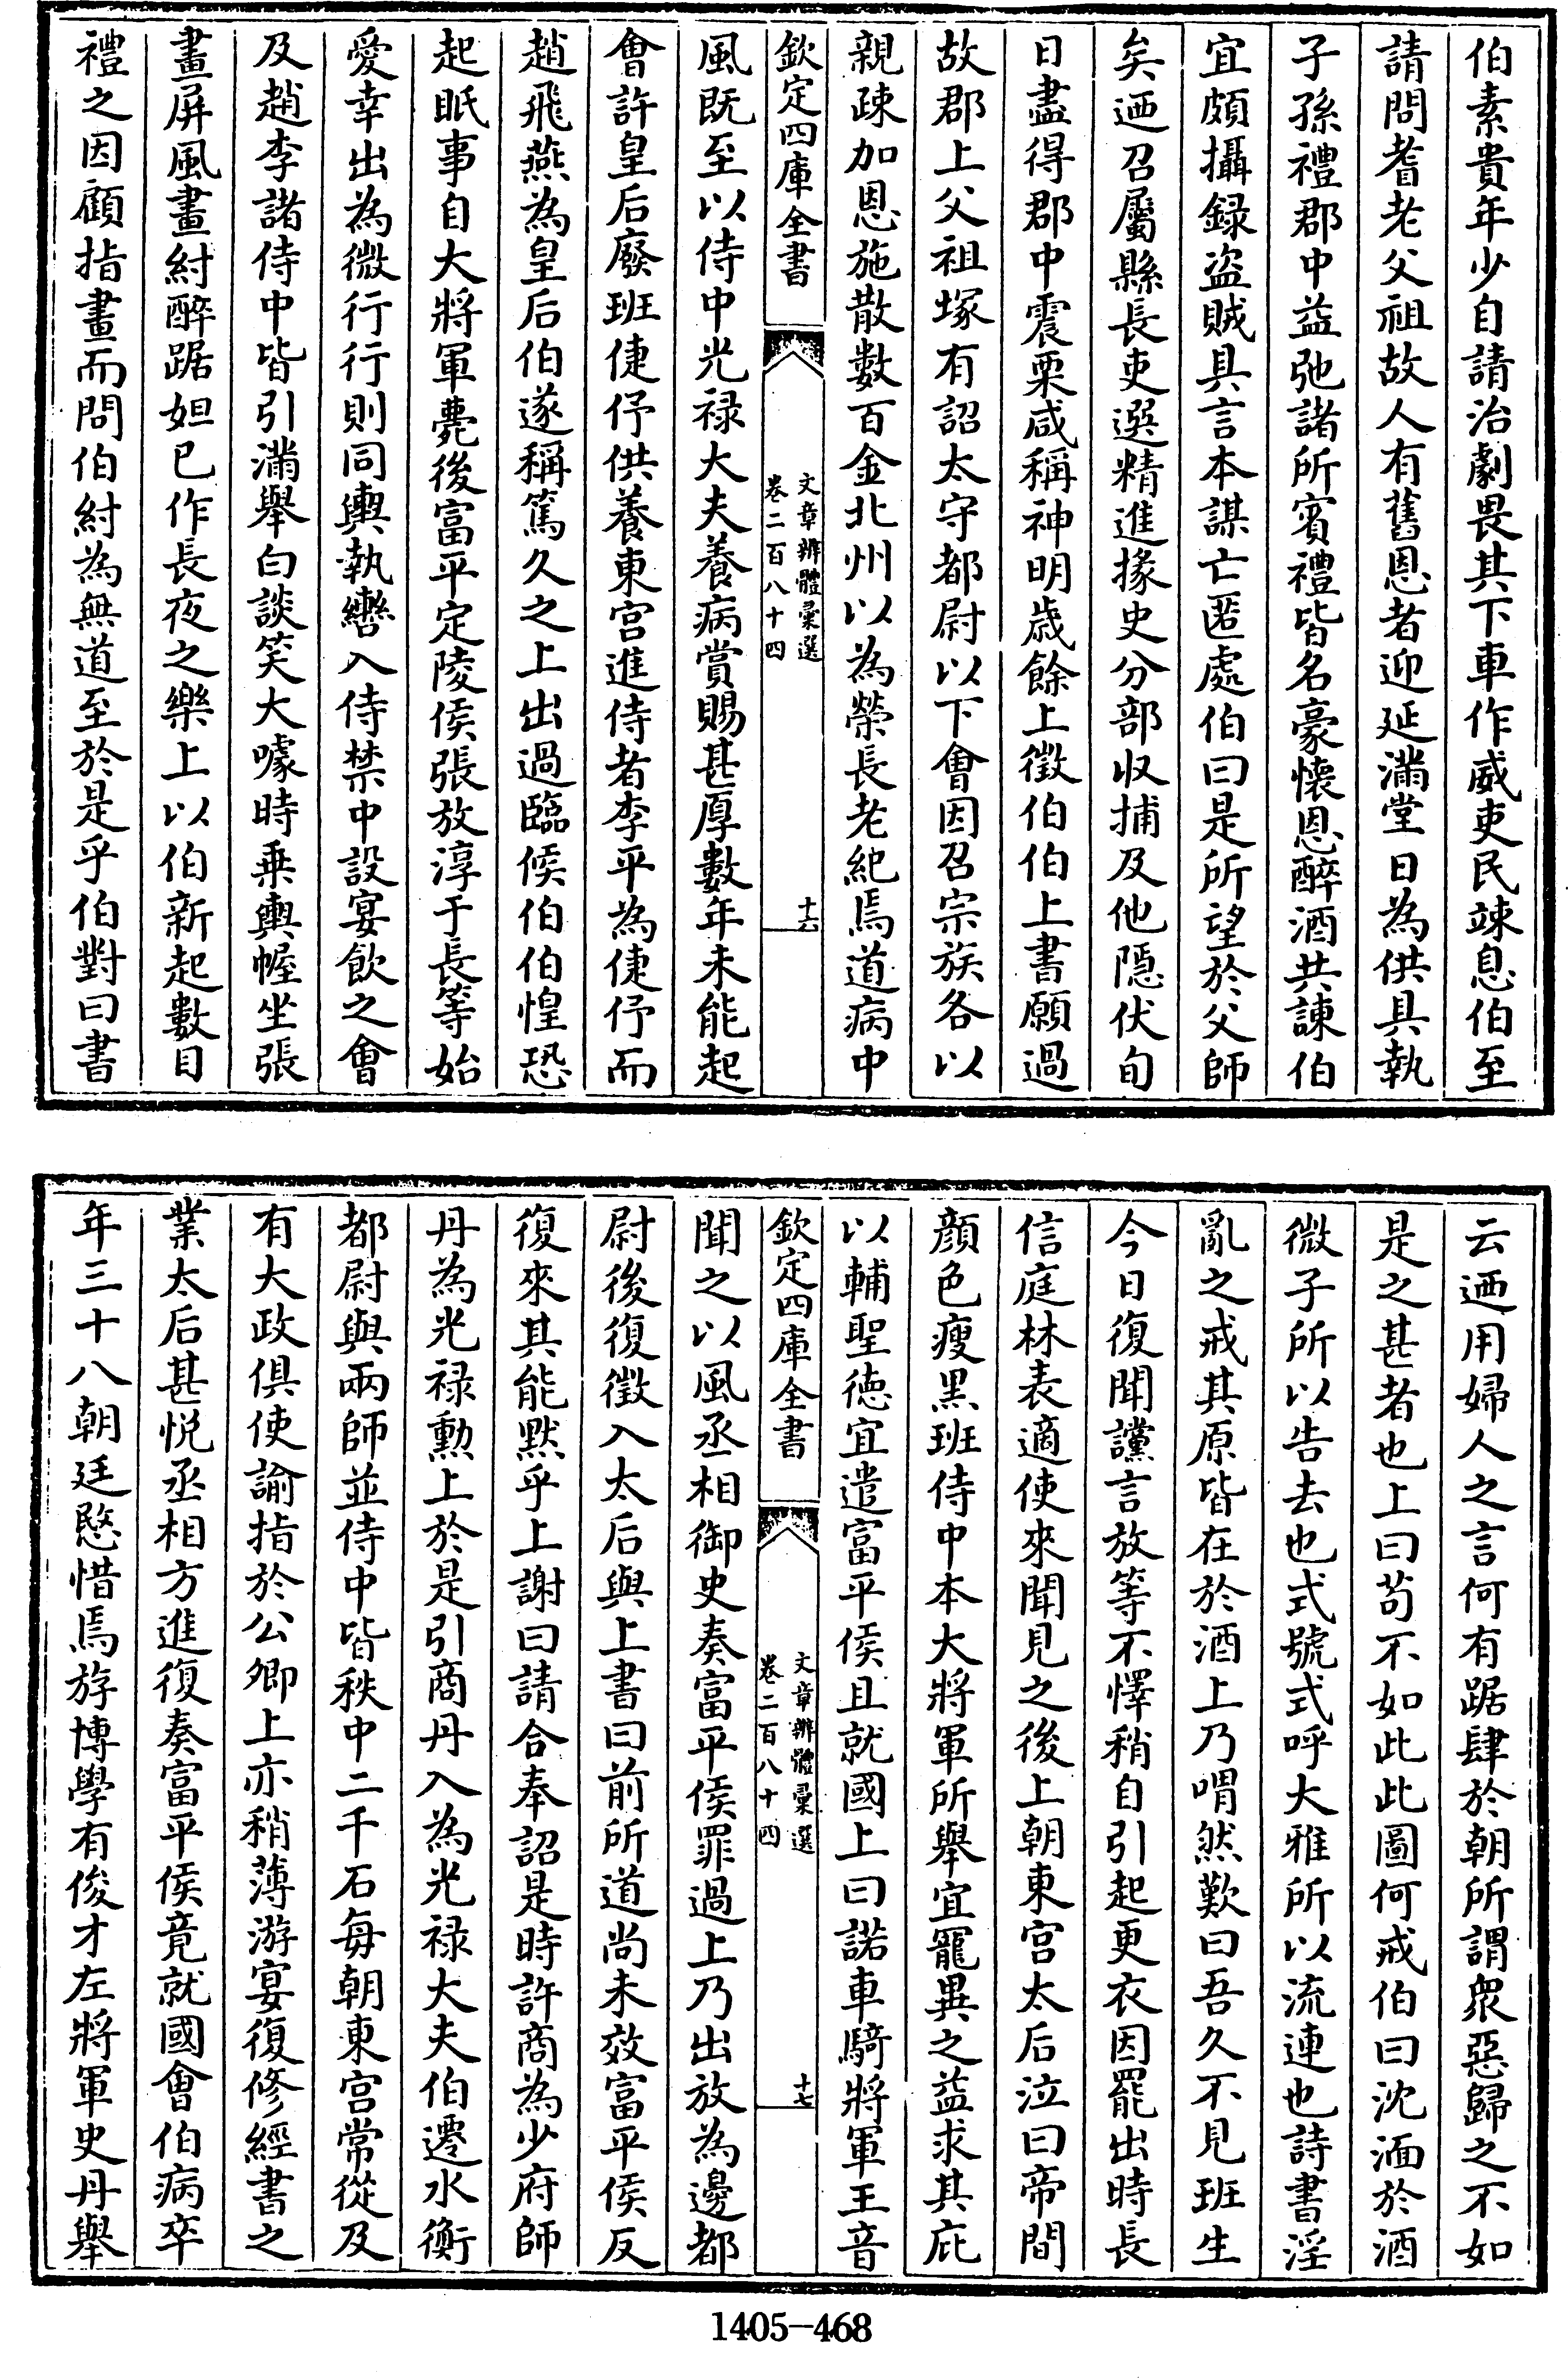 伯素貴年少自請治劇畏其下車作威吏民竦息伯至
請問耆老父祖故人有舊恩者迎延滿堂日為供具執
子孫禮郡中益弛諸所賓禮皆名豪懐恩醉酒共諫伯
宜頗攝録盗賊具言本謀亡匿處伯曰是所望於父師
矣迺召屬縣長吏選精進掾史分部収捕及他隠伏旬
日盡得郡中震栗咸稱神明歳餘上徵伯伯上書願過
故郡上父祖塚有詔太守都尉以下會因召宗族各以
親疎加恩施散數百金北州以為榮長老紀焉道病中
欽定四庫全書
文章辨體彚選
卷二百八十四
十六
風既至以侍中光禄大夫養病賞賜甚厚數年未能起
會許皇后廢班倢伃供養東宫進侍者李平為倢伃而
趙飛燕為皇后伯遂稱篤久之上出過臨候伯伯惶恐
起眂事自大將軍薨後富平定陵侯張放淳于長等始
愛幸出為微行行則同輿執轡入侍禁中設宴飲之會
及趙李諸侍中皆引滿舉白談笑大噱時乗輿幄坐張
畫屏風畫紂醉踞妲已作長夜之樂上以伯新起數目
禮之因顧指畫而問伯紂為無道至於是乎伯對曰書
云迺用婦人之言何有踞肆於朝所謂衆惡歸之不如
是之甚者也上曰茍不如此此圖何戒伯曰沈湎於酒
微子所以告去也式號式呼大雅所以流連也詩書淫
亂之戒其原皆在於酒上乃喟然歎曰吾久不見班生
今日復聞讜言放等不懌稍自引起更衣因罷出時長
信庭林表適使來聞見之後上朝東宫太后泣曰帝間
顔色瘦黒班侍中本大將軍所舉宜寵異之益求其庇
以輔聖徳宜遣富平侯且就國上曰諾車騎將軍王音
欽定四庫全書
文章辨體彚選
卷二百八十四
十七
聞之以風丞相御史奏富平侯罪過上乃出放為邊都
尉後復徵入太后與上書曰前所道尚未效富平侯反
復來其能黙乎上謝曰請合奉詔是時許商為少府師
丹為光禄勲上於是引商丹入為光禄大夫伯遷水衡
都尉與兩師並侍中皆秩中二千石每朝東宫常從及
有大政俱使諭指於公卿上亦稍薄游宴復修經書之
業太后甚悦丞相方進復奏富平侯竟就國會伯病卒
年三十八朝廷愍惜焉斿博學有俊才左將軍史丹舉
1405—468